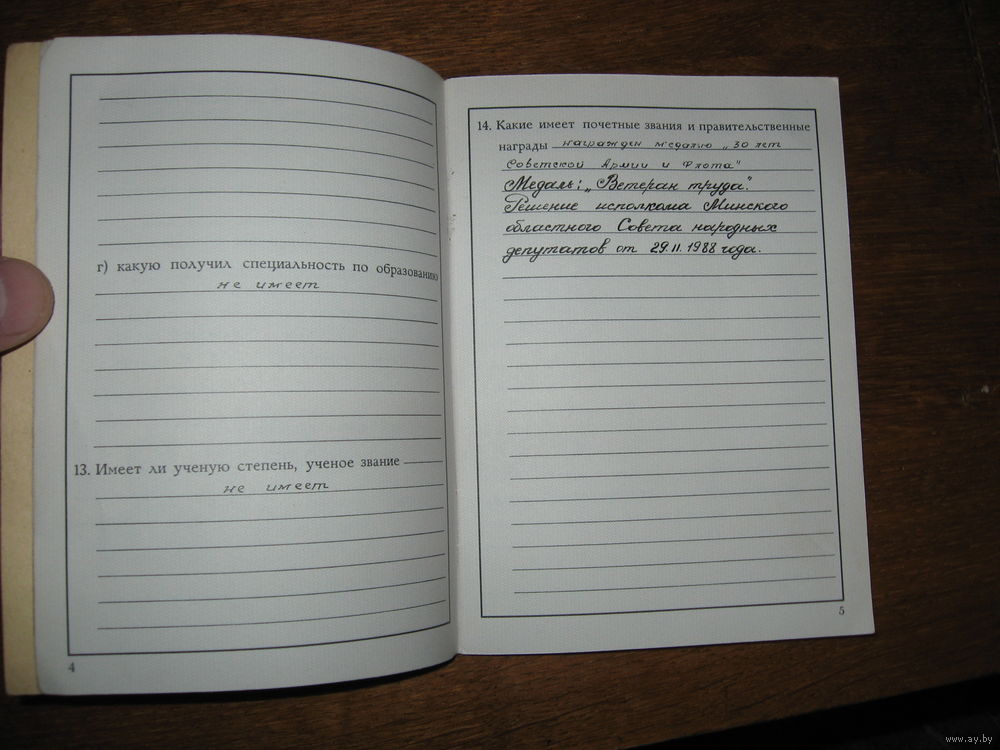 г) какую получил специальность по образованию
не имеет
13. Имеет ли ученую степень, ученое звание
не имеет
4
14. Какие имеет почетные звания и правительственные
награды награжден медалью „30 лет
Советской Армии и Флота"
Медаль: „Ветеран труда".
Решение исполкома Минского
областного Совета народных
депутатов от 29.11.1988 года.
5
www.ay.by